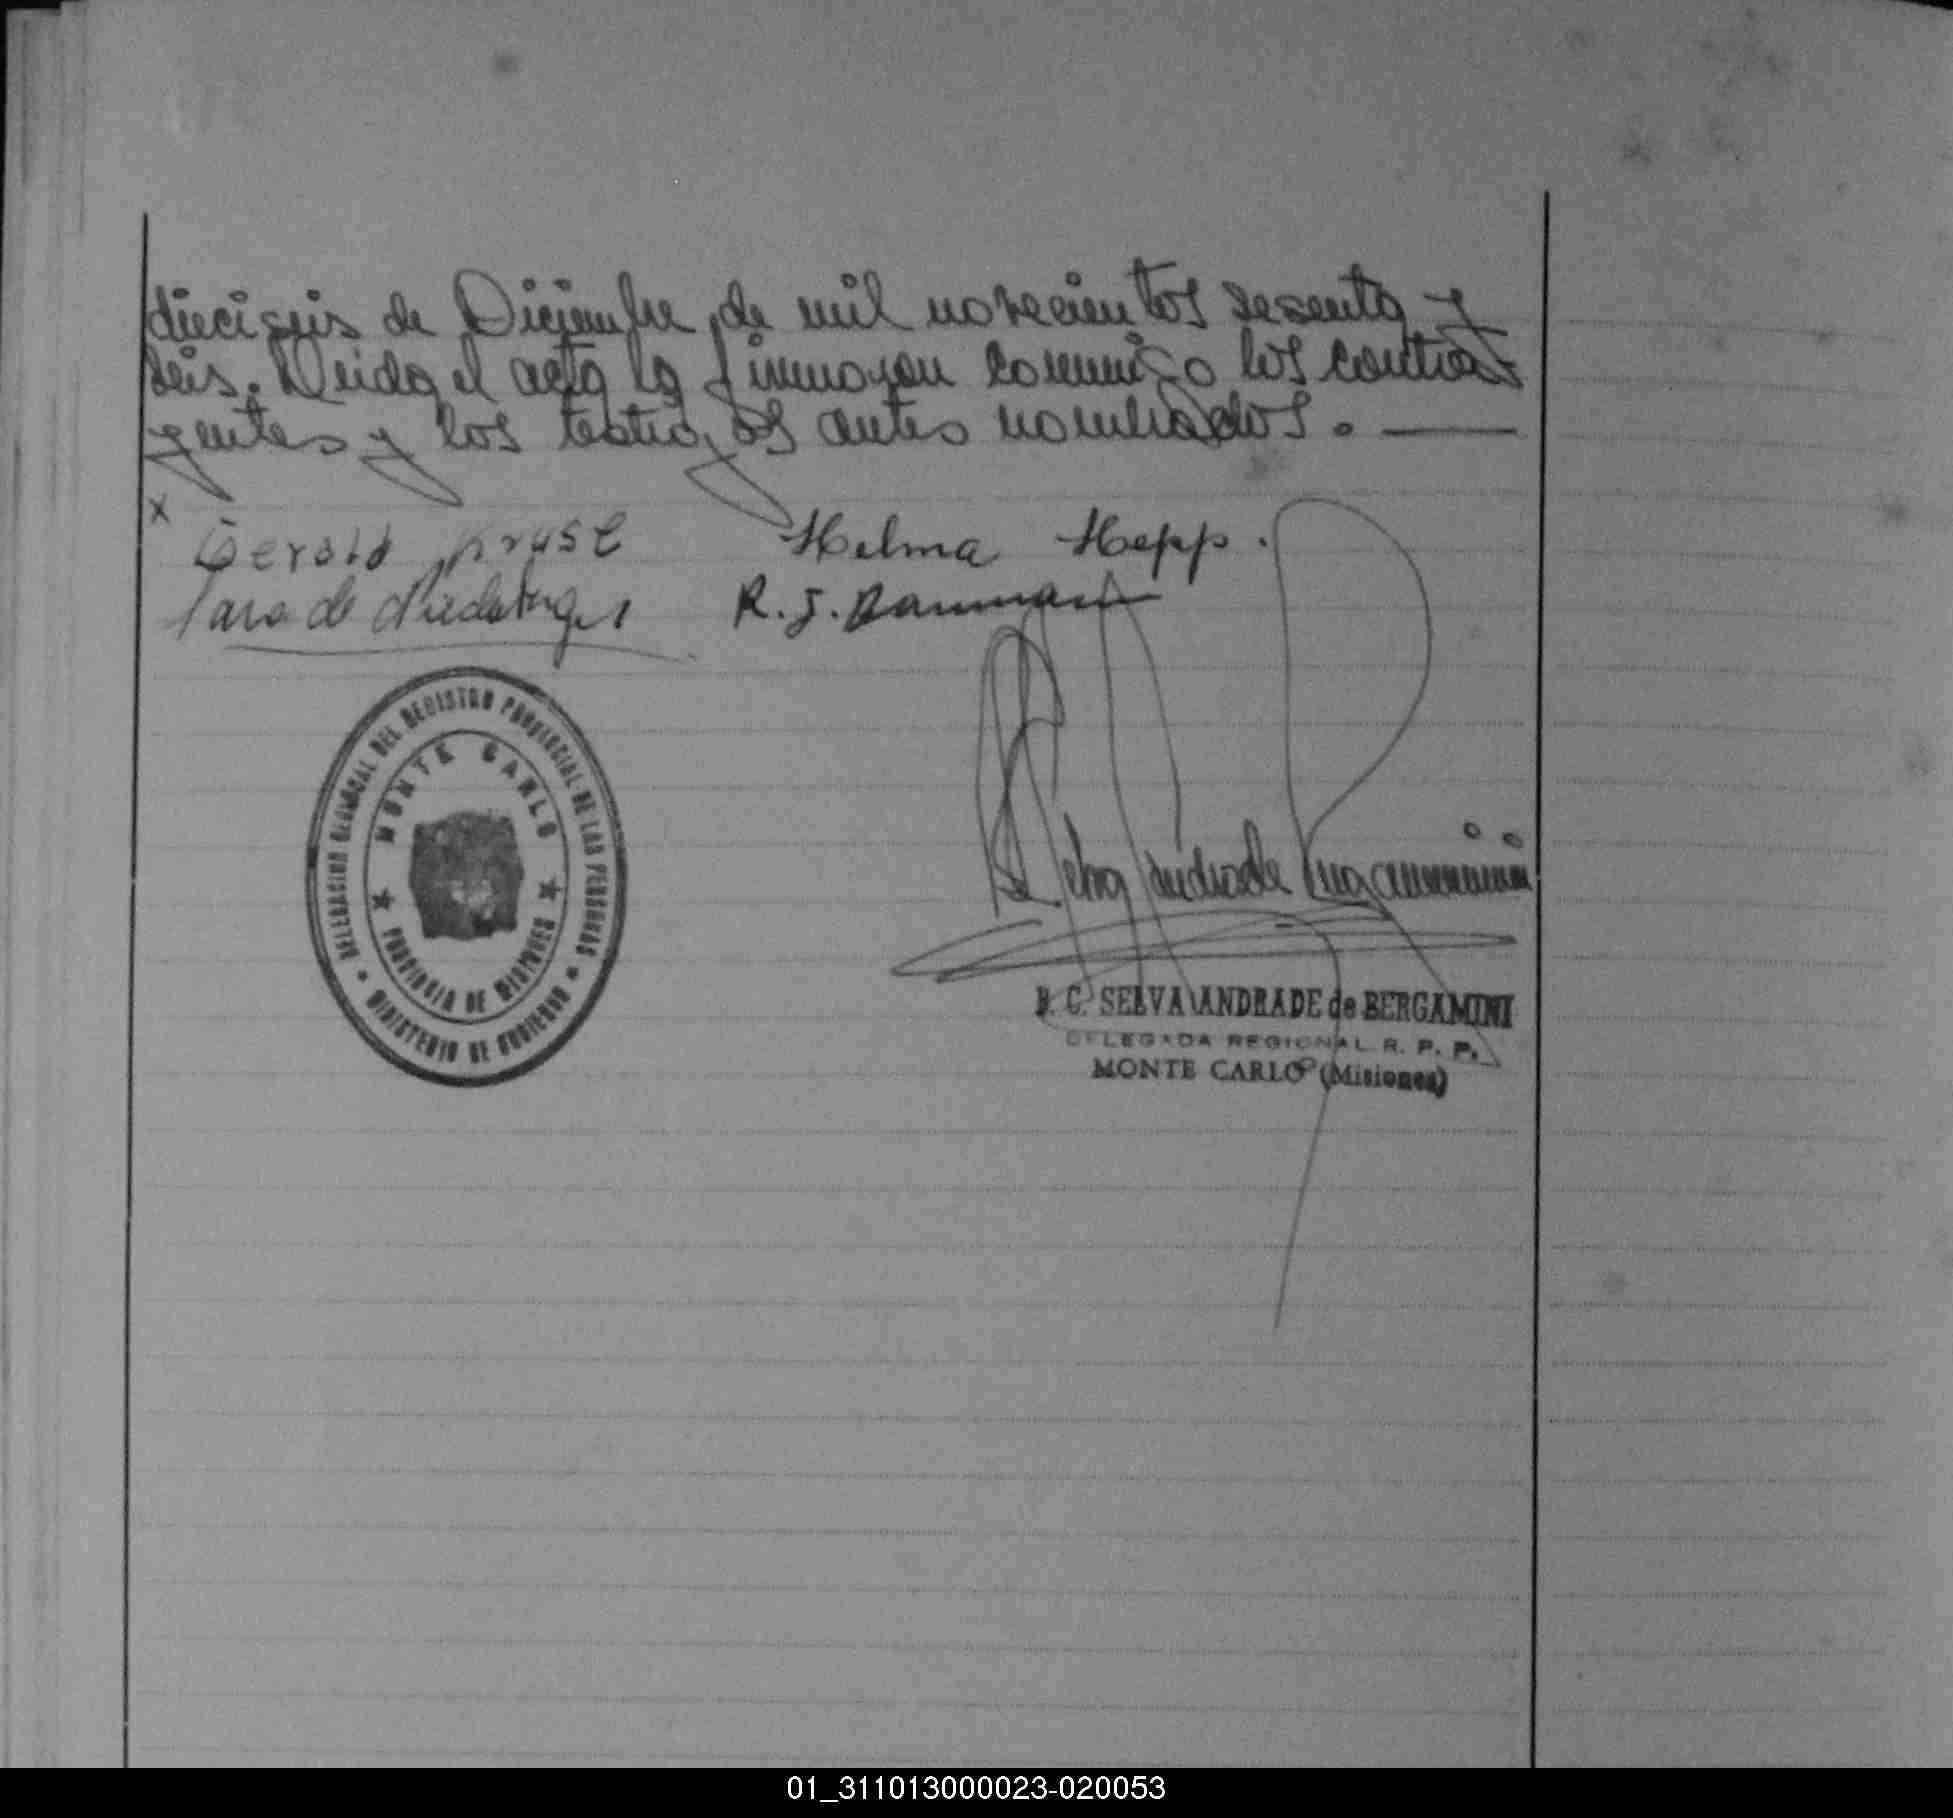 dieciseis de Diciembre de mil novecientos sesenta y
seis. Leida el acta la firmaron conmigo los contra
yentes y los testigos antes nombrados. —
x
Gerold Kruse Helma Hepp.
de R. J. Baumann
DELEGACION REGIONAL DEL REGISTRO PROVINCIAL DE LAS PERSONAS
MONTE CARLO
PROVINCIA DE MISIONES
MINISTERIO DE GOBIERNO
Selva Andrade Bergamini
B. C. SELVA ANDRADE de BERGAMINI
DELEGADA REGIONAL R. P. P.
MONTE CARLO (Misiones)
01_311013000023-020053